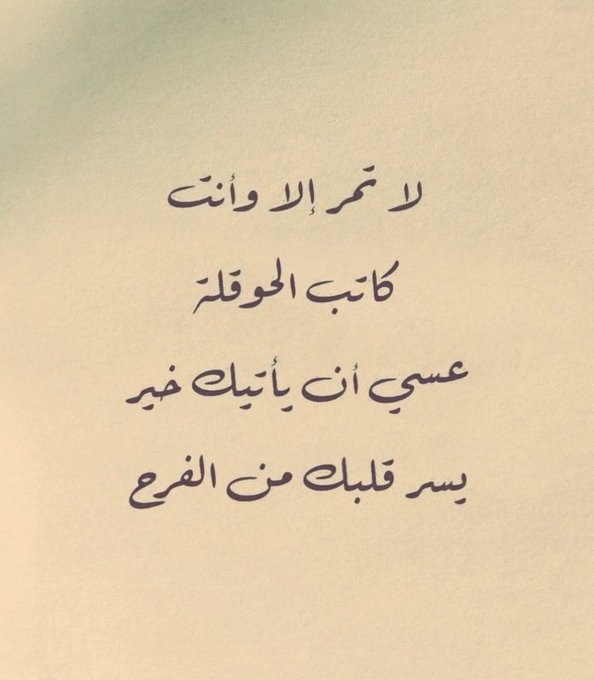 لا تمر إلا وأنت
كاتب الحوقلة
عسي أن يأتيك خير
يسر قلبك من الفرح